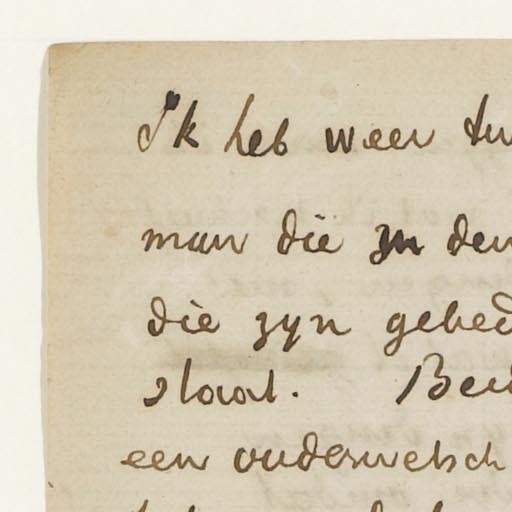 Ik heb weer tw
man die zn den
die zyn geheel
slaat. Bei
een ouderwetsch